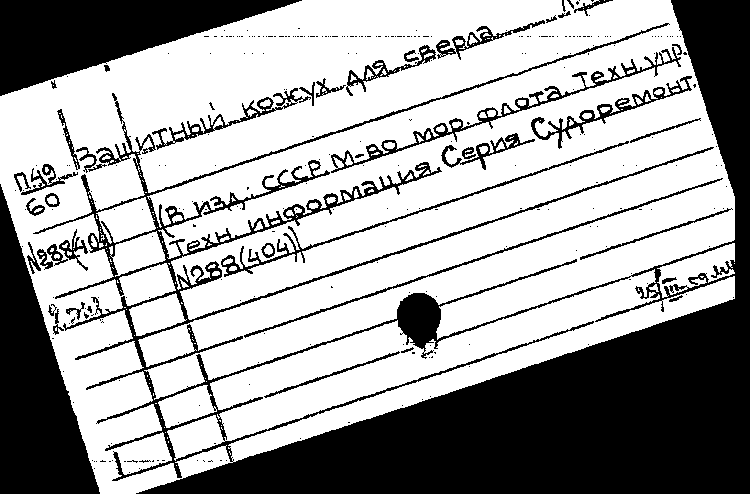 Защитный кожух для сверла
П49
60
(В изд.: СССР. М-во мор. флота. Техн. упр.
Техн. информация. Серия Судоремонт.
N288(404))
N288(404)
2 экз.
25/III-59